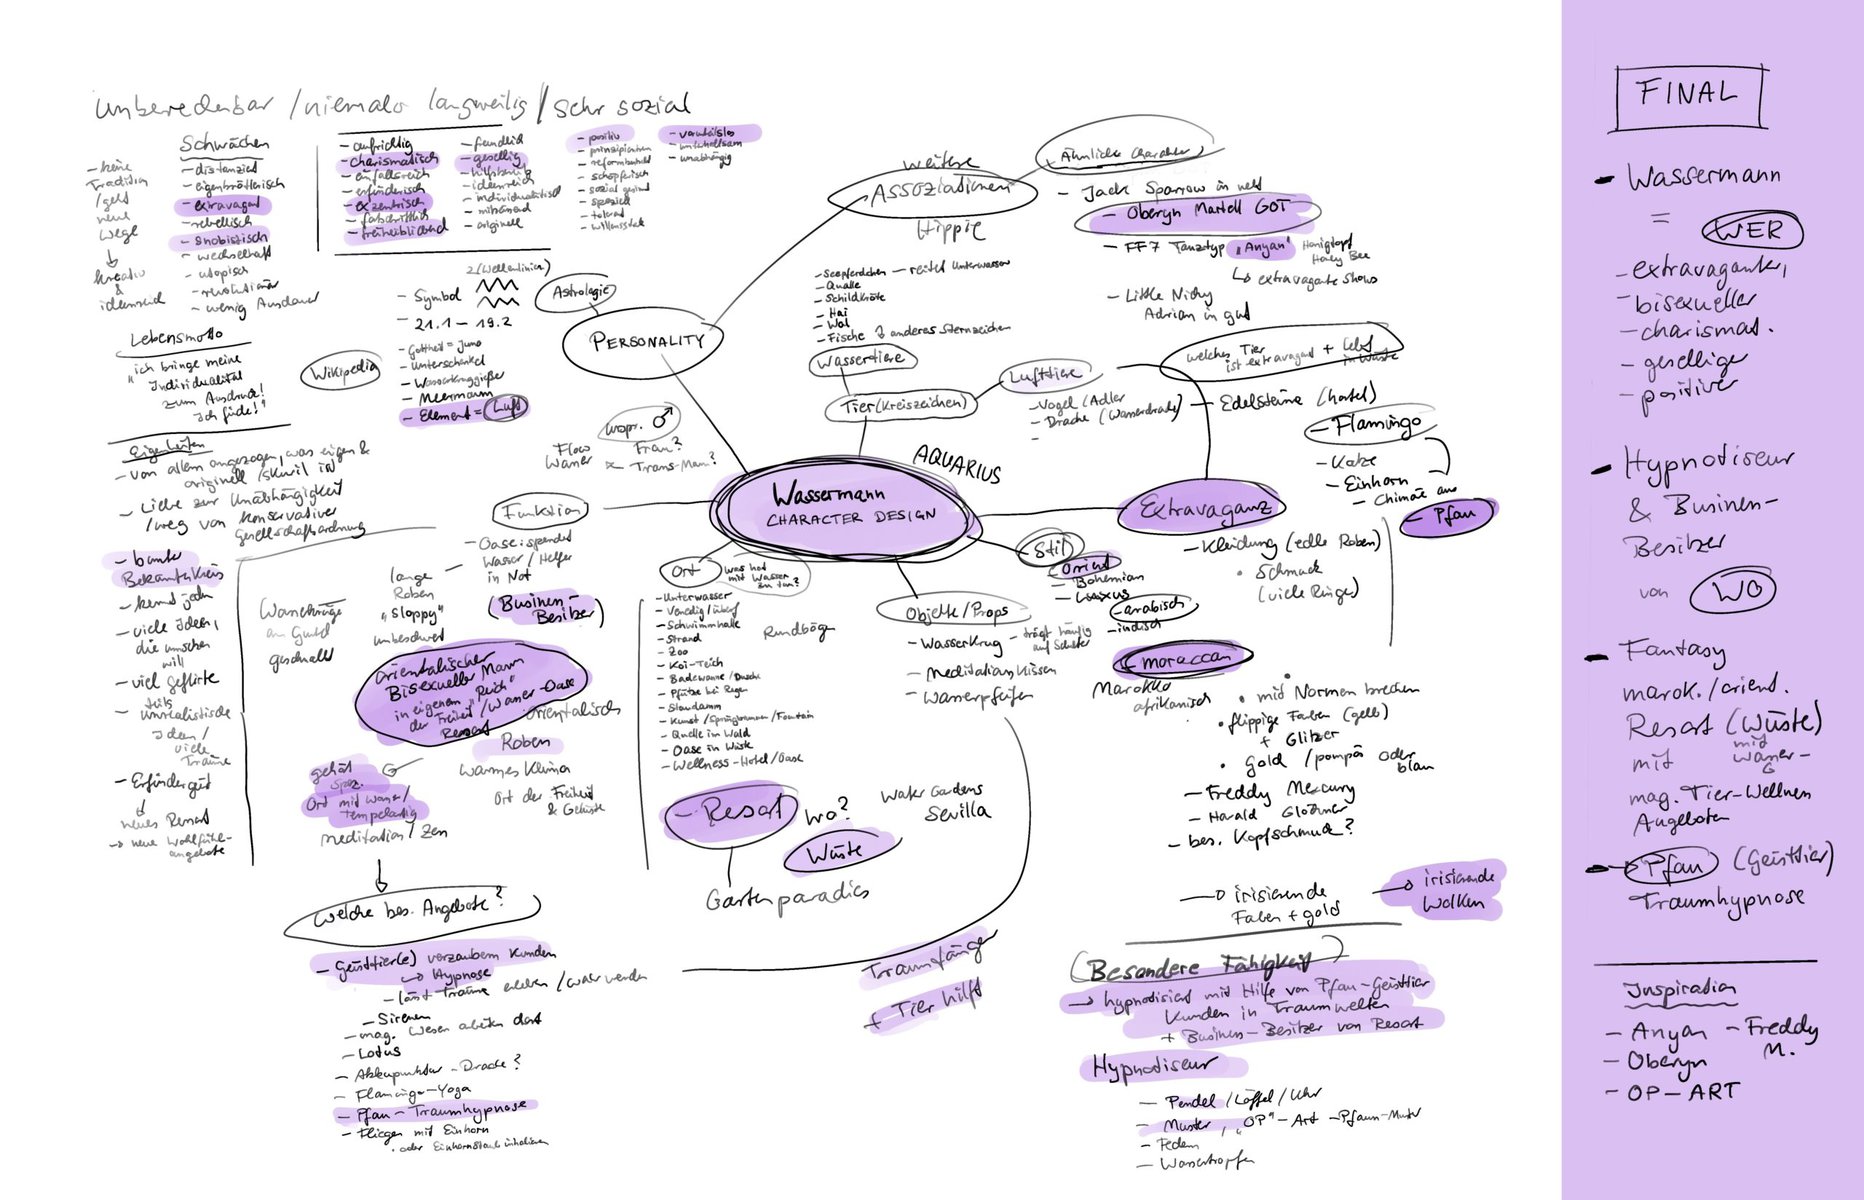 unberechenbar / niemals langweilig / sehr sozial
Schwächen
- keine
Tradition
/geht
neue
Wege
kreativ
&
ideenreich
- distanziert
- eigenbrötlerisch
- extravagant
- rebellisch
- snobistisch
- wechselhaft
- utopisch
- revolutionär
- wenig Ausdauer
- aufrichtig
- charismatisch
- einfallsreich
- erfinderisch
- exzentrisch
- fortschrittlich
- freiheitsliebend
- freundlich
- gesellig
- hilfsbereit
- ideenreich
- individualistisch
- originell
- positiv
- prinzipientreu
- schöpferisch
- speziell
- tolerant
- willensstark
- vorurteilslos
- unterhaltsam
- unabhängig
Lebensmotto
"ich bringe meine
Individualität
zum Ausdruck!
Eigenheiten
- von allem angezogen, was eigen &
originell / skuril ist
- Liebe zur Unabhängigkeit
/ weg von konservativer
Gesellschaftsordnung
- bunter
Bekanntenkreis
- kennt jeden
- viele Ideen,
die umsetzen
will
- viel geflirte
- teils
unrealistische
Ideen /
viele
Träume
- Erfindergeist
neues Resort
→ neue Wohlfühl-
angebote
Wikipedia
Astrologie
2 (Wellenlinien)
- Symbol
- 21.1 – 19.2
- Gottheit = Juno
- Unterschenkel
- Wasserkruggießer
- Meermann
- Element = Luft
PERSONALITY
weitere
ASSOZIATIONEN
Hippie
Ähnliche Charakter
- Jack Sparrow in nett
- Oberyn Martell GOT
- FF7 Tanztyp "Anyan" Honigtopf
Honey Bee
↳ extravagante Shows
- Little Nicky
Adrian in gut
- Seepferdchen – reitet unterwasser
- Qualle
- Schildkröte
- Hai
- Wal
- Fische → anderes Sternzeichen
Wassertiere
Tier (Kreiszeichen)
Lufttiere
- Vogel / Adler
- Drache (Wasserdrache)
- Edelsteine
welches Tier
ist extravagant + lebt
in Wüste
- Flamingo
- Katze
- Einhorn
- Chimäre aus
- Pfau
urspr. ♂
Frau?
Trans-Mann?
Flow
Wasser
AQUARIUS
Wassermann
CHARACTER DESIGN
Funktion
- Oase: spendet
Wasser / Helfer
in Not
(Businessen-
Besitzer)
lange
Roben
"Sloppy"
unbeschwert
Wasserkrüge
am Gürtel
geschnallt
orientalischer
Bisexueller Mann
in eigenem "Reich"
der Freiheit / Wasser-Oase
Resort
orientalisch
Roben
warmes Klima
Ort der Freiheit
& Gelüste
gehört
spez.
Ort mit Wasser /
tempelartig
meditation / Zen
Welche bes. Angebote?
- Geisttier(e) verzaubern Kunden
→ Hypnose
- lässt Träume erleben / wahr werden
- Sirenen
- mag. Wesen arbeiten dort
- Lotus
- Akkupunktur - Drache?
- Flamingo-Yoga
- Pfau - Traumhypnose
- Fliegen mit Einhorn
. oder Einhornstaub inhalieren
Ort
was hat
mit Wasser
zu tun?
- Unterwasser
- Venedig
- Schwimmhalle
- Strand
- Zoo
- Koi-Teich
- Badewanne / Dusche
- Pfütze bei Regen
- Staudamm
- Kunst / Springbrunnen / Fountain
- Quelle im Wald
- Oase in Wüste
- Wellness-Hotel / Oase
Rundbögen
- Resort
Wo?
Wüste
Gartenparadies
Water Gardens
Sevilla
Objekte / Props
- Wasserkrug - trägt häufig
auf Schulter
- Meditationskissen
- Wasserpfeifen
Traumfänger
+ Tier hilft
Stil
- Orient
- Bohemian
- Luxus
- arabisch
- indisch
- moroccan
Marokko
afrikanisch
Extravaganz
- Kleidung (edle Roben)
• Schmuck
(viele Ringe)
• mit Normen brechen
• flippige Farben (gelb)
+ Glitzer
• gold / pompös oder
blau
- Freddy Mercury
- Harald Glööckner
- bes. Kopfschmuck?
→ irisierende
Farben + gold
→ irisierende
Wolken
(Besondere Fähigkeit)
→ hypnotisiert mit Hilfe von Pfau-Geisttier
Kunden in Traumwelten
+ Business-Besitzer von Resort
Hypnotiseur
- Pendel / Löffel / Uhr
- Muster, "OP"-Art - Pfauen-Muster
- Federn
- Wassertropfen
FINAL
- Wassermann
= WER
- extravaganter,
- bisexueller
- charismat.
- geselliger
- positiver
- Hypnotiseur
& Businessen-
Besitzer
von WO
- Fantasy
marok. / orient.
Resort (Wüste)
mit mit Wasser-
mag. Tier-Wellness
Angeboten
→ Pfau (Geisttier)
Traumhypnose
Inspiration
- Anyan - Freddy
M.
- Oberyn
- OP-ART